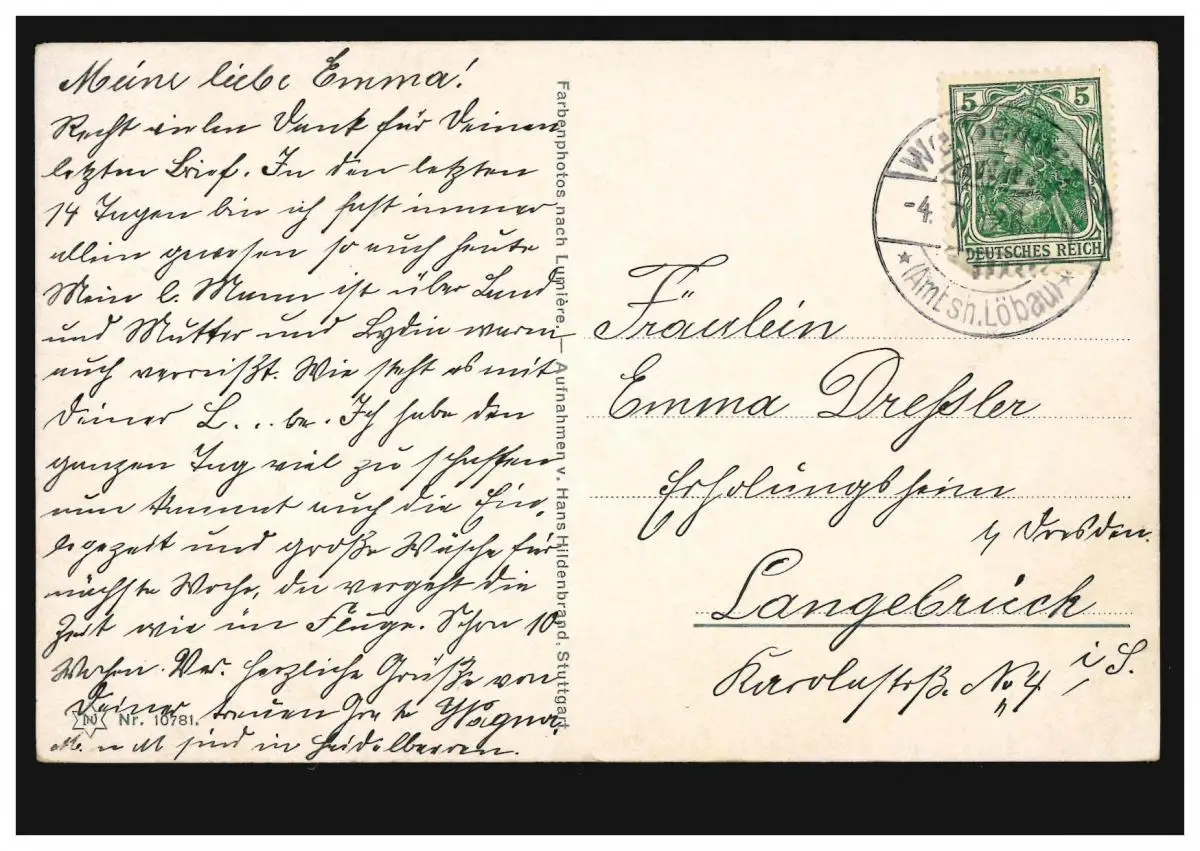 Meine liebe Emma!
Recht vielen Dank für Deinen
letzten Brief. In den letzten
14 Tagen bin ich fast immer
allein gewesen so auch heute
Mein l. Mann ist über Land
und Mutter und Lydia waren
auch verreißt. Wie steht es mit
Deiner L... be. Ich habe den
ganzen Tag viel zu schaffen
nun kommt auch die Ein-
legezeit und große Wäsche für
nächste Woche, da vergeht die
Zeit wie im Fluge. Schon 10
Wochen. Herzliche Grüße von
Deiner treuen Wagner
M. u M sind in Heidelbeeren.
Nr. 10781.
Farbenphotos nach Lumière — Aufnahmen v. Hans Hildenbrand, Stuttgart
5 5
DEUTSCHES REICH
-4.
(Amtsh. Löbau)
Fräulein
Emma Dreßler
Erholungsheim
b/ Dresden.
Langebrück
i/S.
Karolastrß. No 4